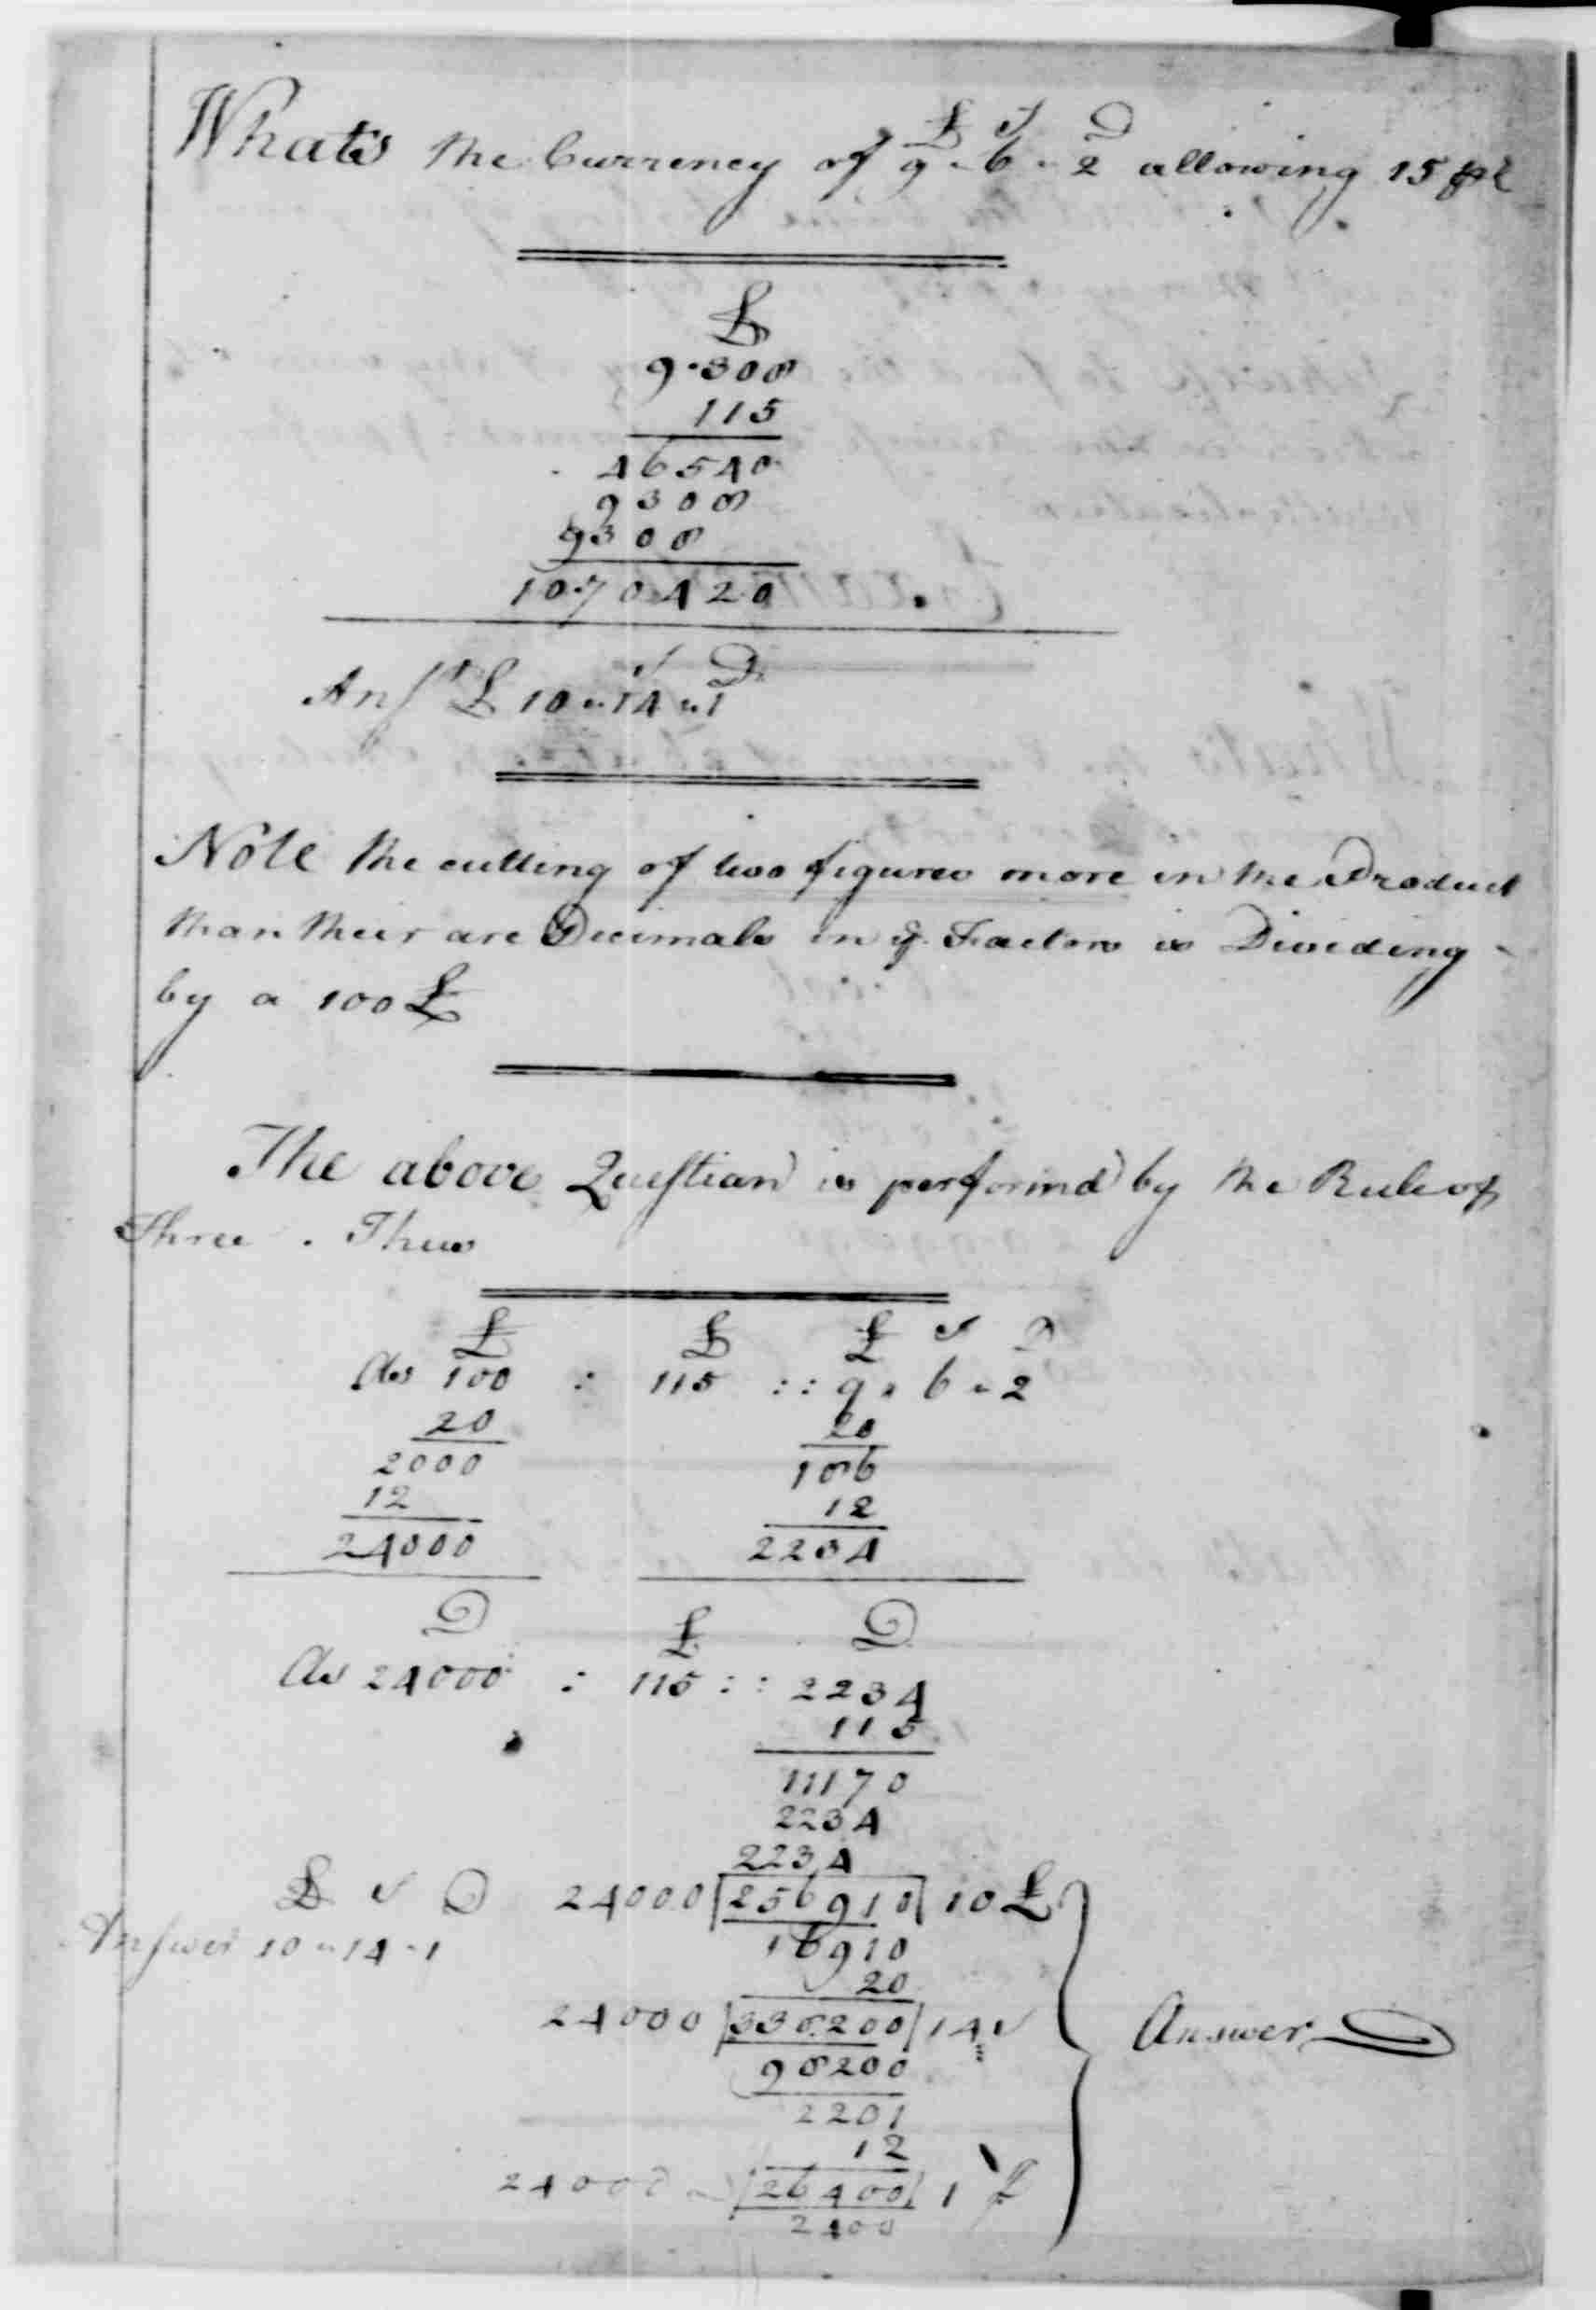 £ S D
Whats the Currency of 9 " 6 " 2 allowing 15 p Ct
£
9.308
115
46540
9308
9308
10.70420
S D
Ansr £ 10 " 14 " 1
Note the cutting of two figures more in the Product
than their are Decimals in ye. Factors is Dividing
by a 100 £
The above Question is performd by the Rule of
Three . Thus
£ £ £ S D
As 100 : 115 :: 9 " 6 " 2
20 20
2000 186
12 12
24000 2234
D £ D
As 24000 : 115 :: 2234
115
11170
2234
2234
£ S D 24000 256910 10 £
Answer 10 " 14 " 1 16910
20
24000 338200 14 S
98200 Answer
2201
12
24000 26400 1
2400